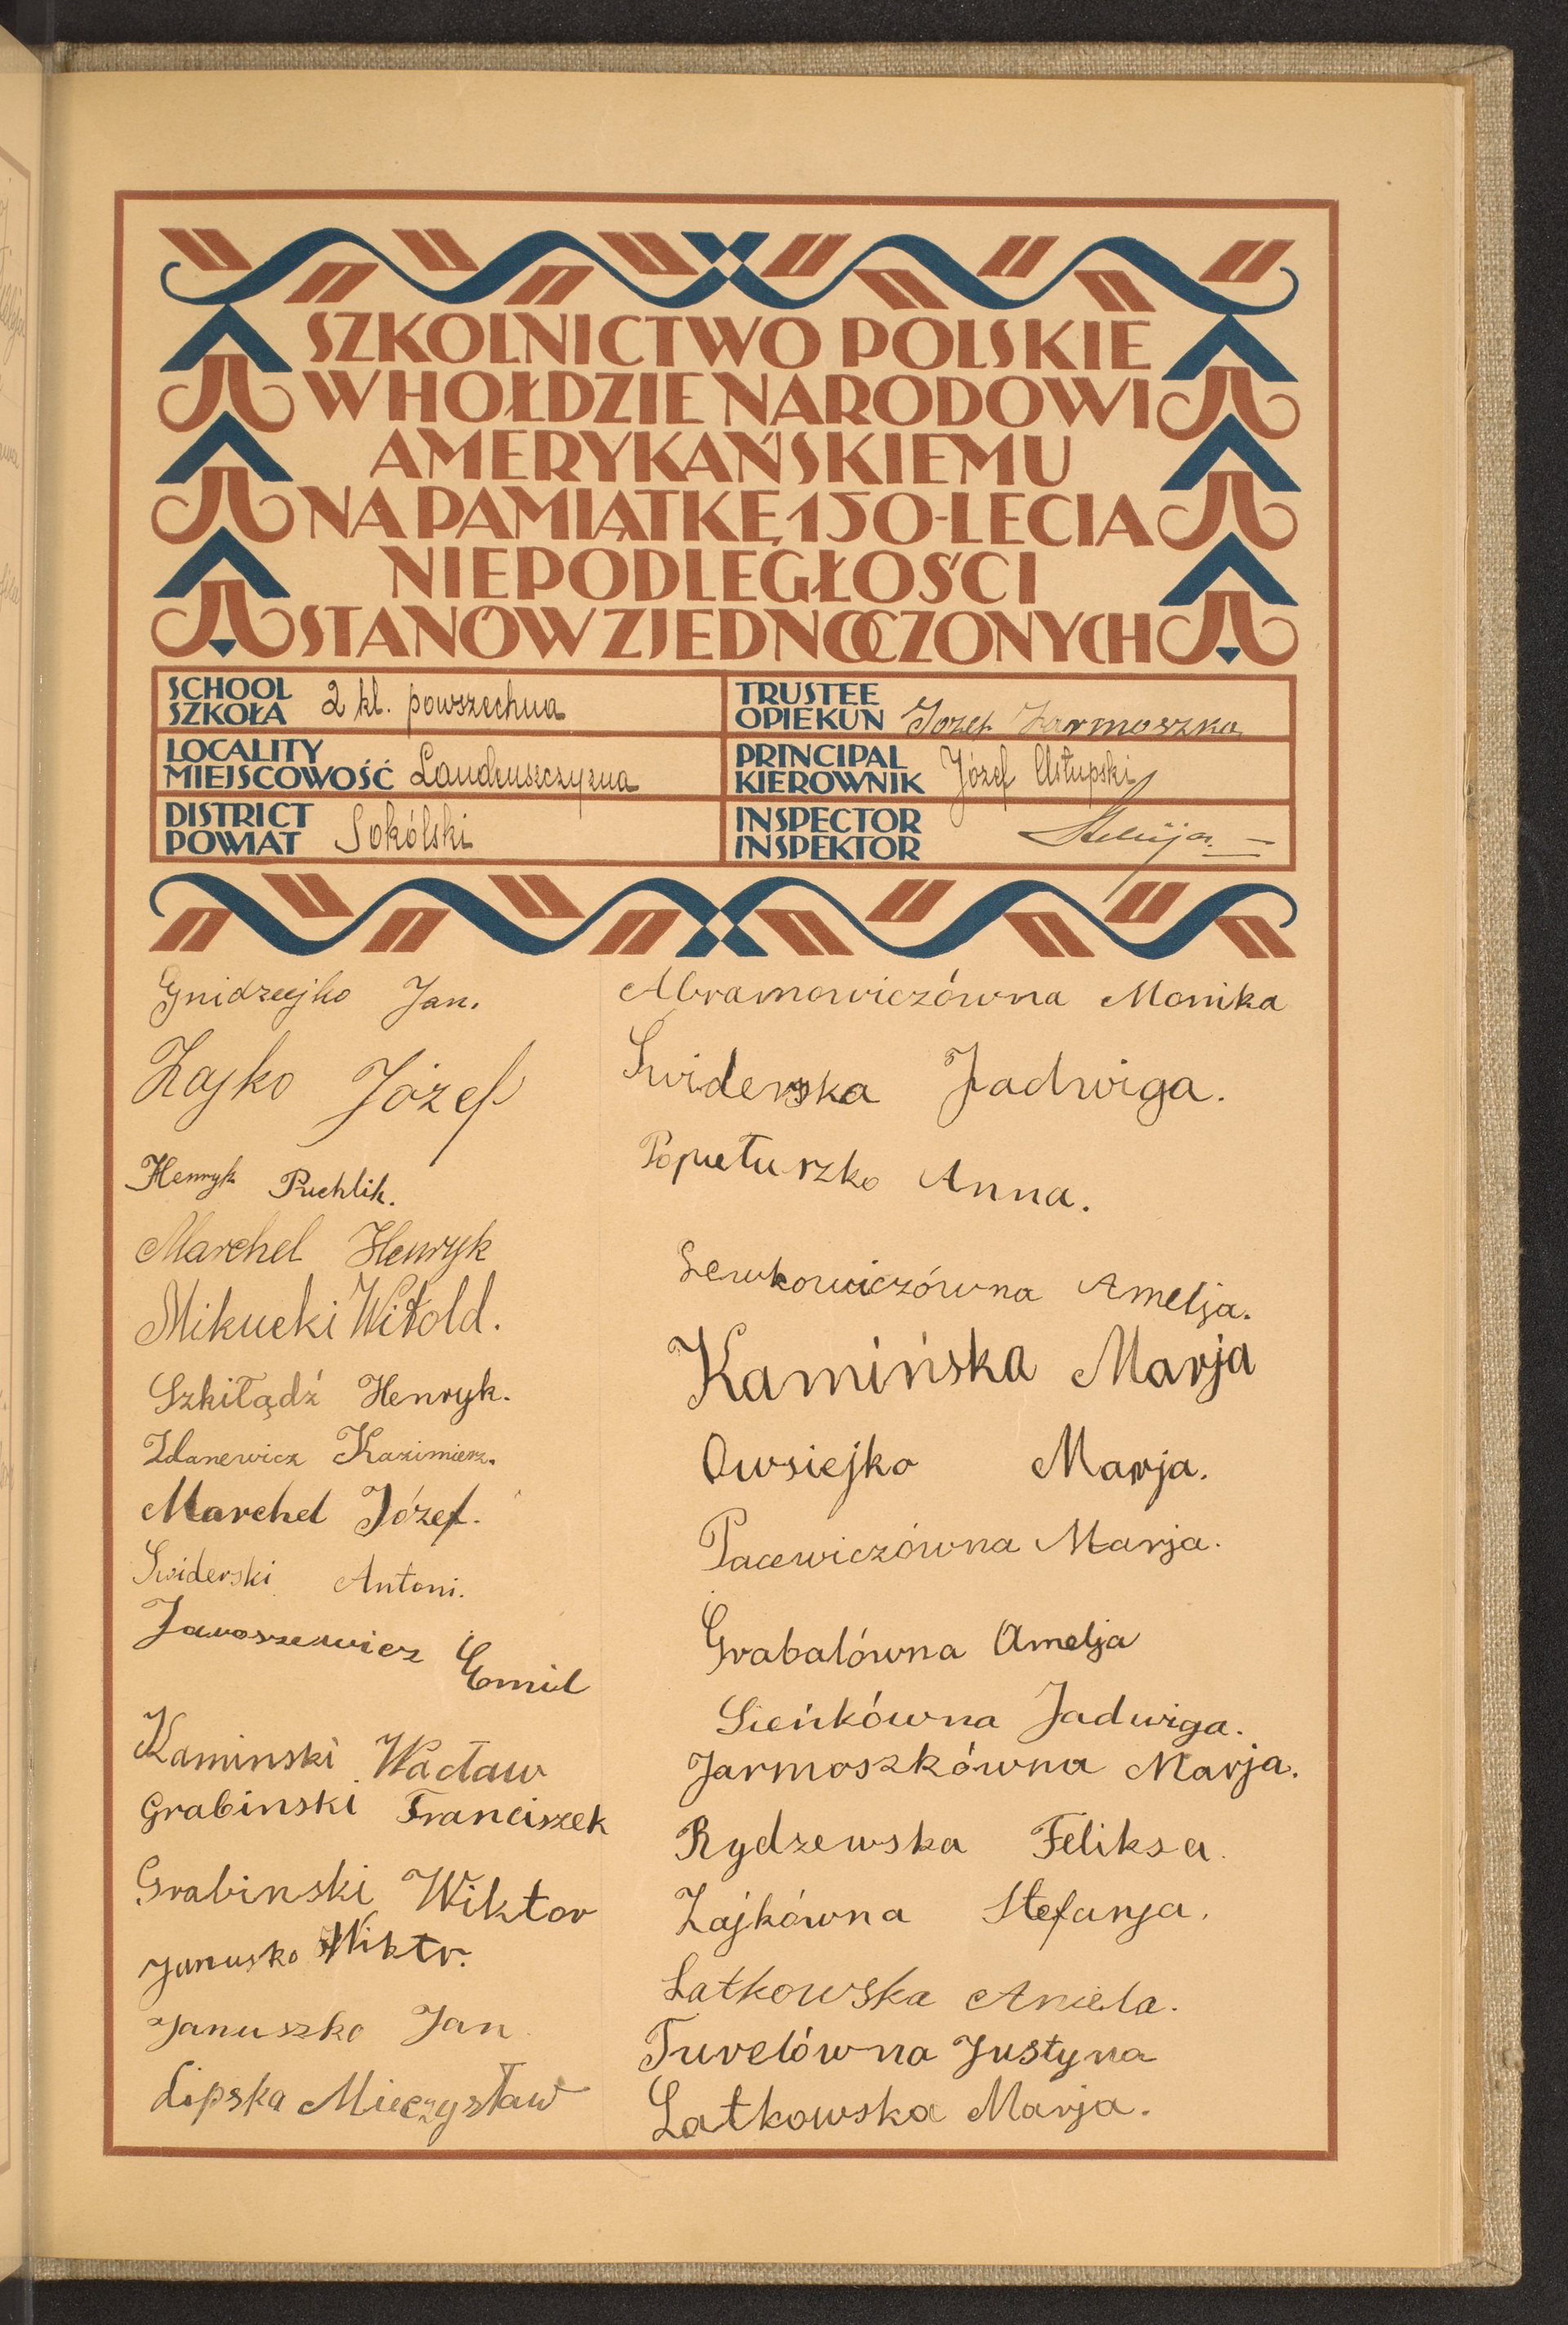 SZKOLNICTWO POLSKIE
W HOŁDZIE NARODOWI
AMERYKAŃSKIEMU
NA PAMIĄTKĘ 150-LECIA
NIEPODLEGŁOŚCI
STANÓW ZJEDNOCZONYCH
SCHOOL
SZKOŁA 2 kl. powszechna
LOCALITY
MIEJSCOWOŚĆ
DISTRICT
POWIAT Sokólski
TRUSTEE
OPIEKUN Józef Jarmoszko
PRINCIPAL
KIEROWNIK Józef Ustupski
INSPECTOR
INSPEKTOR
Gnidziejko Jan.
Zajko Józef
Henryk Puchlik.
Marchel Henryk
Mikucki Witold.
Szkiłądź Henryk.
Zdanewicz Kazimierz.
Marchel Józef.
Swiderski Antoni.
Jaroszewicz Emil
Kaminski Wacław
Grabinski Franciszek
Grabinski Wiktor
Janusko Wiktr.
Januszko Jan
Lipska Mieczysław
Abramowiczówna Monika
Swiderska Jadwiga.
Popiełuszko Anna.
Lewkowiczówna Amelja.
Kamińska Marja
Owsiejko Marja.
Pacewiczówna Marja.
Grabalówna Amelja
Sieńkówna Jadwiga.
Jarmoszkówna Marja.
Rydzewska Feliksa.
Zajkówna Stefanja.
Latkowska Aniela.
Turelówna Justyna
Latkowska Marja.